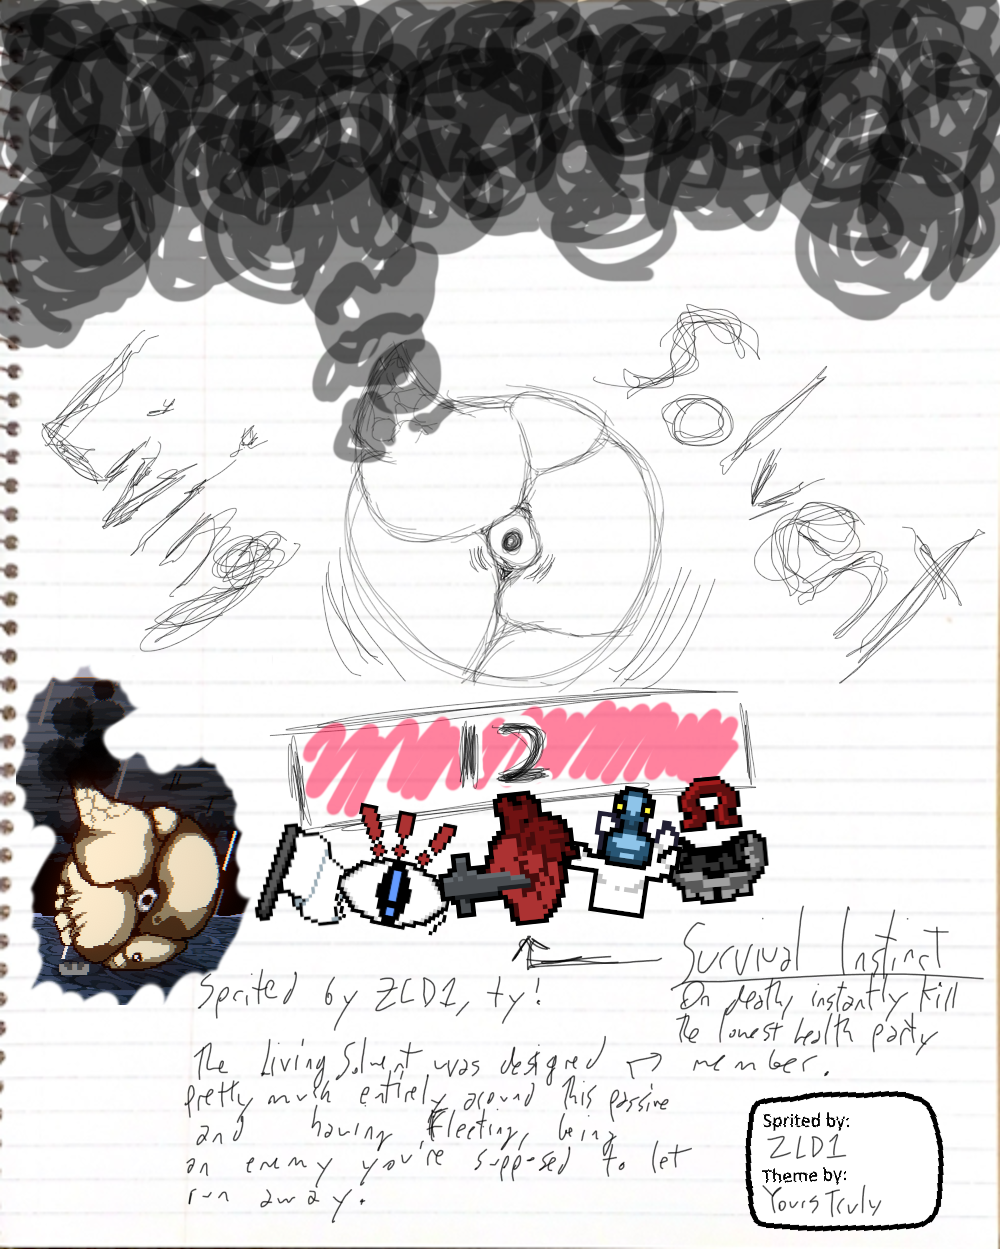 Living Solvent
12
Survival Instinct
On death, instantly kill
the lowest health party
member.
Sprited by ZLD1, ty!
The Living Solvent was designed
pretty much entirely around this passive
and having Fleeting, being
an enemy you're supposed to let
run away.
Sprited by:
ZLD1
Theme by:
Yours Truly